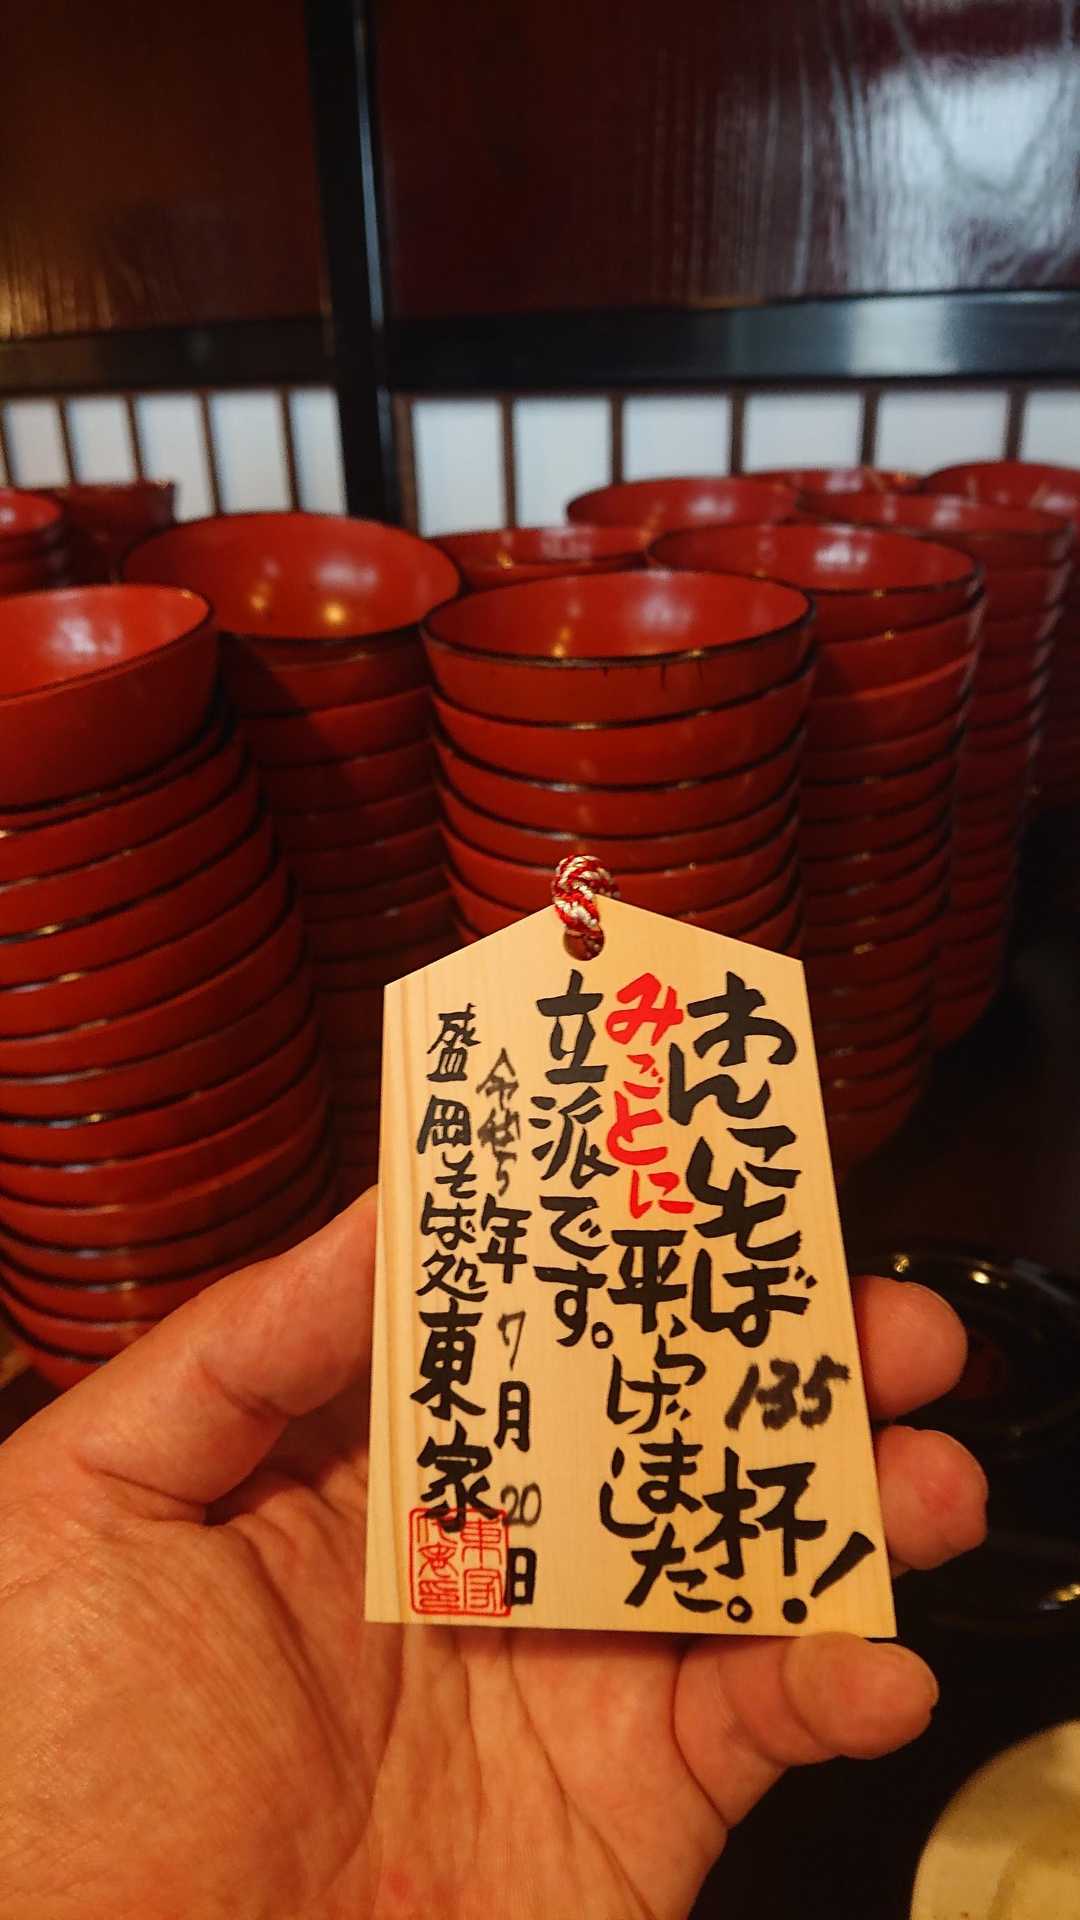 わんこそば 135 杯!
みごとに平らげました。
立派です。
令和5年7月20日
盛岡そば処東家
東家